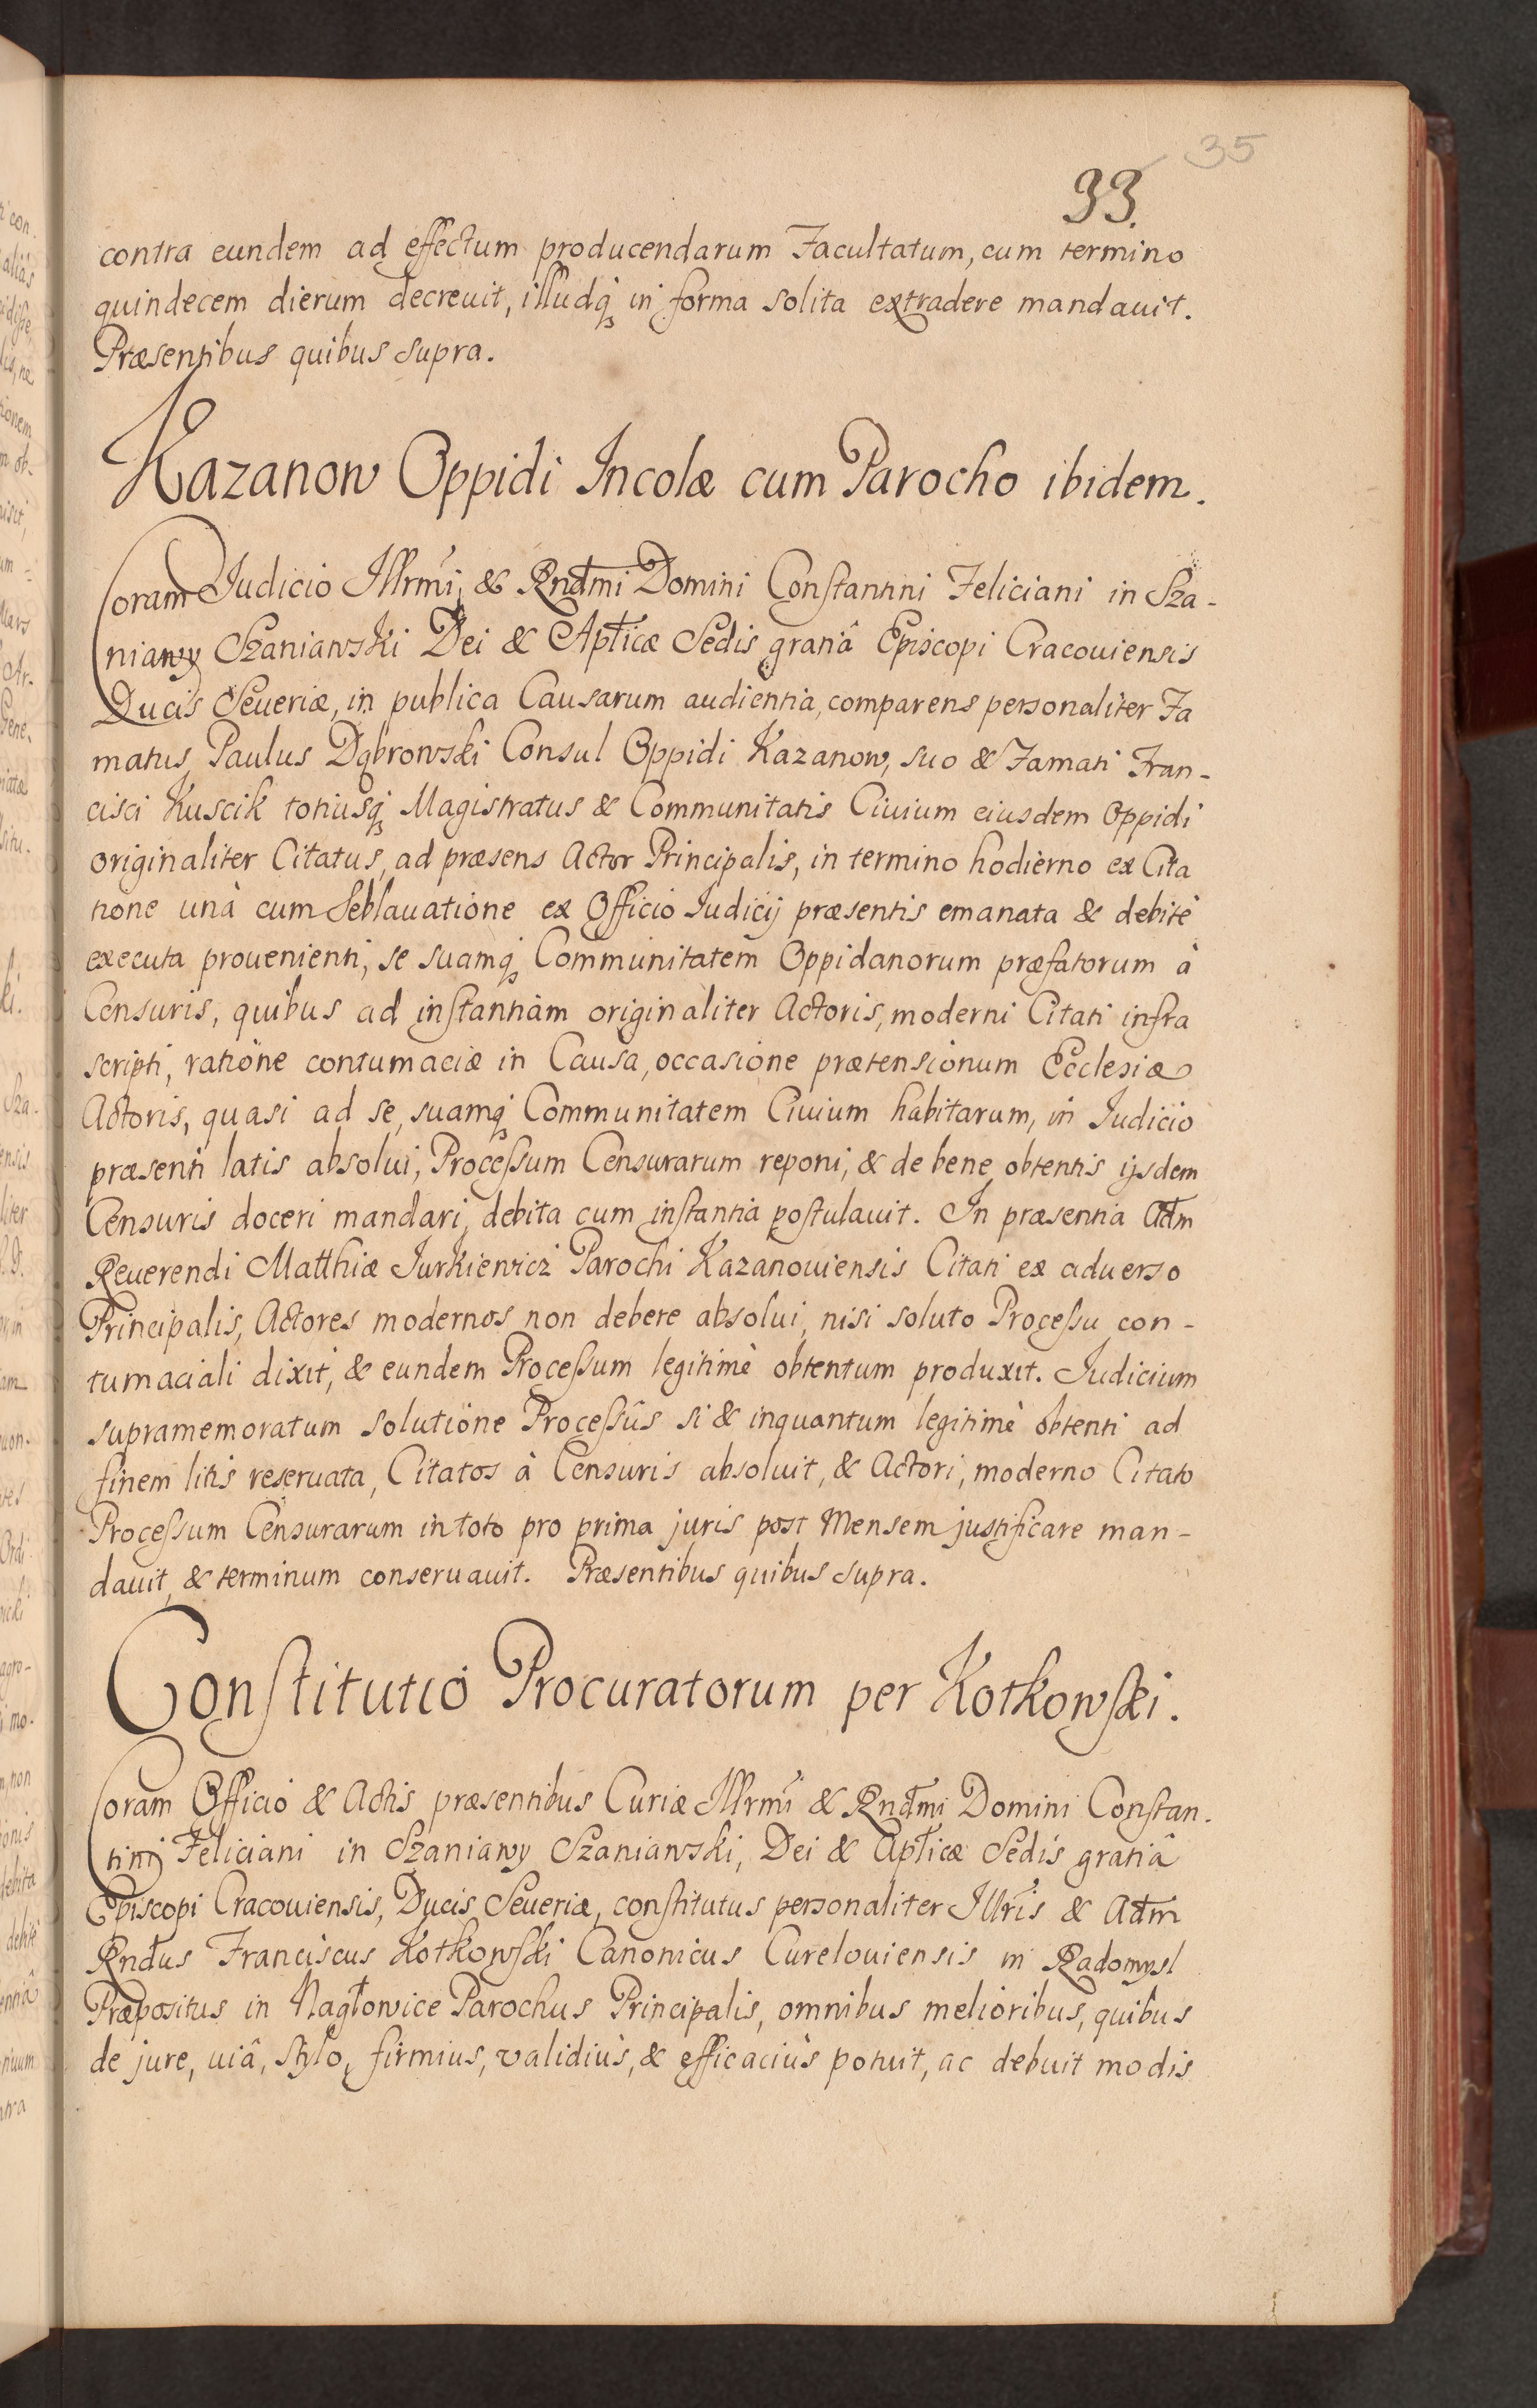 35
33.
contra eundem ad effectum producendarum Facultatum, cum termino
quindecem dierum decreuit, illudq₃ in forma solita extradere mandauit.
Præsentibus quibus supra.
Kazanow Oppidi Incolæ cum Parocho ibidem.
Coram Iudicio Illrmi & Rndmi Domini Constantini Feliciani in Sza-
niawy Szaniawski Dei & Aptlicæ Sedis gratiâ Episcopi Cracouiensis
Ducis Seueriæ, in publica Causarum audientia, comparens personaliter Fa
matus Paulus Dąbrowski Consul Oppidi Kazanow, suo & Famati Fran-
cisci Kuscik totiusq₃ Magistratus & Communitatis Ciuium eiusdem Oppidi
originaliter Citatus, ad præsens Actor Principalis, in termino hodierno ex Cita
tione unà cum Seblauatione ex Officio Iudicij præsentis emanata & debitè
executa prouenienti, se suamq₃ Communitatem Oppidanorum præfatorum à
Censuris, quibus ad instantiam originaliter Actoris, moderni Citati infra
scripti, ratione contumaciæ in Causa, occasione prætensionum Ecclesiæ
Actoris, quasi ad se, suamq₃ Communitatem Ciuium habitarum, in Iudicio
præsenti latis absolui, Processum Censurarum reponi, & de bene obtentis ijsdem
Censuris doceri mandari, debita cum instantia postulauit. In præsentia Adm
Reuerendi Matthiæ Iurkiewicz Parochi Kazanouiensis Citati ex aduerso
Principalis, Actores modernos non debere absolui, nisi soluto Processu con-
tumaciali dixit, & eundem Processum legitimè obtentum produxit. Iudicium
supramemoratum solutione Processûs si & inquantum legitimè obtenti ad
finem litis reseruata, Citatos à Censuris absoluit, & Actori, moderno Citato
Processum Censurarum in toto pro prima juris post Mensem justificare man-
dauit, & terminum conseruauit. Præsentibus quibus supra.
Constitutio Procuratorum per Kotkowski.
Coram Officio & Actis præsentibus Curiæ Illrmi & Rndmi Domini Constan-
tini Feliciani in Szaniawy Szaniawski, Dei & Aptlicæ Sedis gratiâ
Episcopi Cracouiensis, Ducis Seueriæ, constitutus personaliter Illris & Adm
Rndus Franciscus Kotkowski Canonicus Curelouiensis in Radomysl
Præpositus in Nagłowice Parochus Principalis, omnibus melioribus, quibus
de jure, uiâ, stylo, firmius, validiùs, & efficaciùs potuit, ac debuit modis